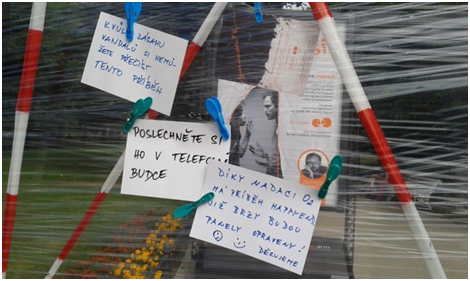 KVŮLI ZÁSAHU
VANDALŮ SI NEMŮ-
ŽETE PŘEČÍST
TENTO PŘÍBĚH
POSLECHNĚTE SI
HO V TELEFONNÍ
BUDCE
DÍKY NADACI O2
MÁ PŘÍBĚH HAPPYEND
JIŽ BRZY BUDOU
PANELY OPRAVENY!
DĚKUJEME